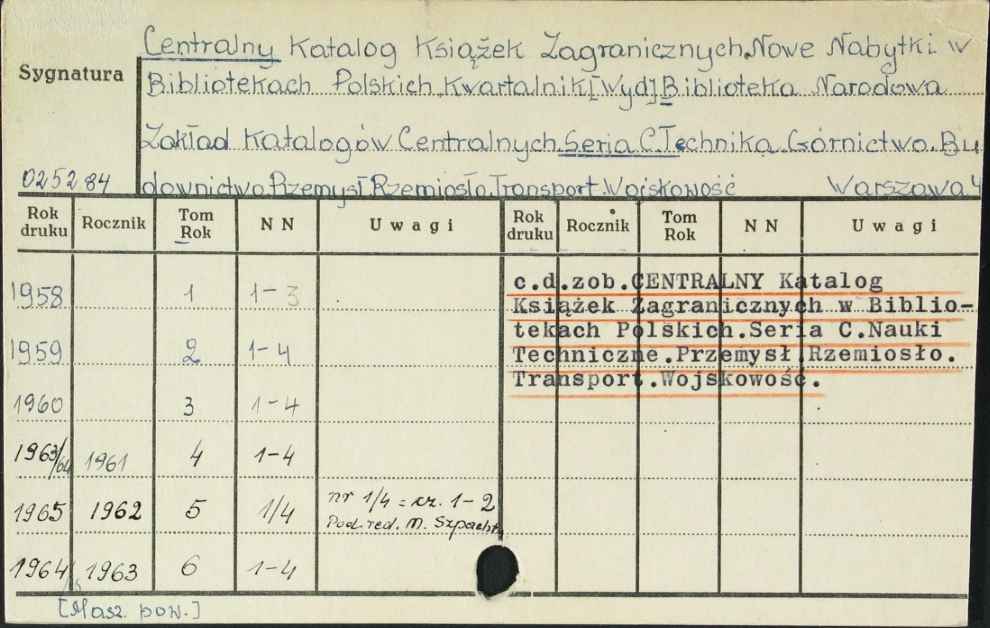 Centralny Katalog Książek Zagranicznych. Nowe Nabytki w
Sygnatura
Bibliotekach Polskich. Kwartalnik [Wyd] Biblioteka Narodowa
Zakład Katalogów Centralnych. Seria C. Technika. Górnictwo. Bu
025284
downictwo. Przemysł. Rzemiosło. Transport. Wojskowość Warszawa
Rok druku Rocznik Tom Rok NN Uwagi Rok druku Rocznik Tom Rok NN Uwagi
1958 1 1-3
1959 2 1-4
1960 3 1-4
1963/64 1961 4 1-4
1965 1962 5 1/4 nr 1/4 = cz. 1-2
Pod. red. M.
1964 1963 6 1-4
[Masz. pow.]
c.d.zob.CENTRALNY Katalog
Książek Zagranicznych w Biblio-
tekach Polskich.Seria C.Nauki
Techniczne.Przemysł.Rzemiosło.
Transport.Wojskowość.